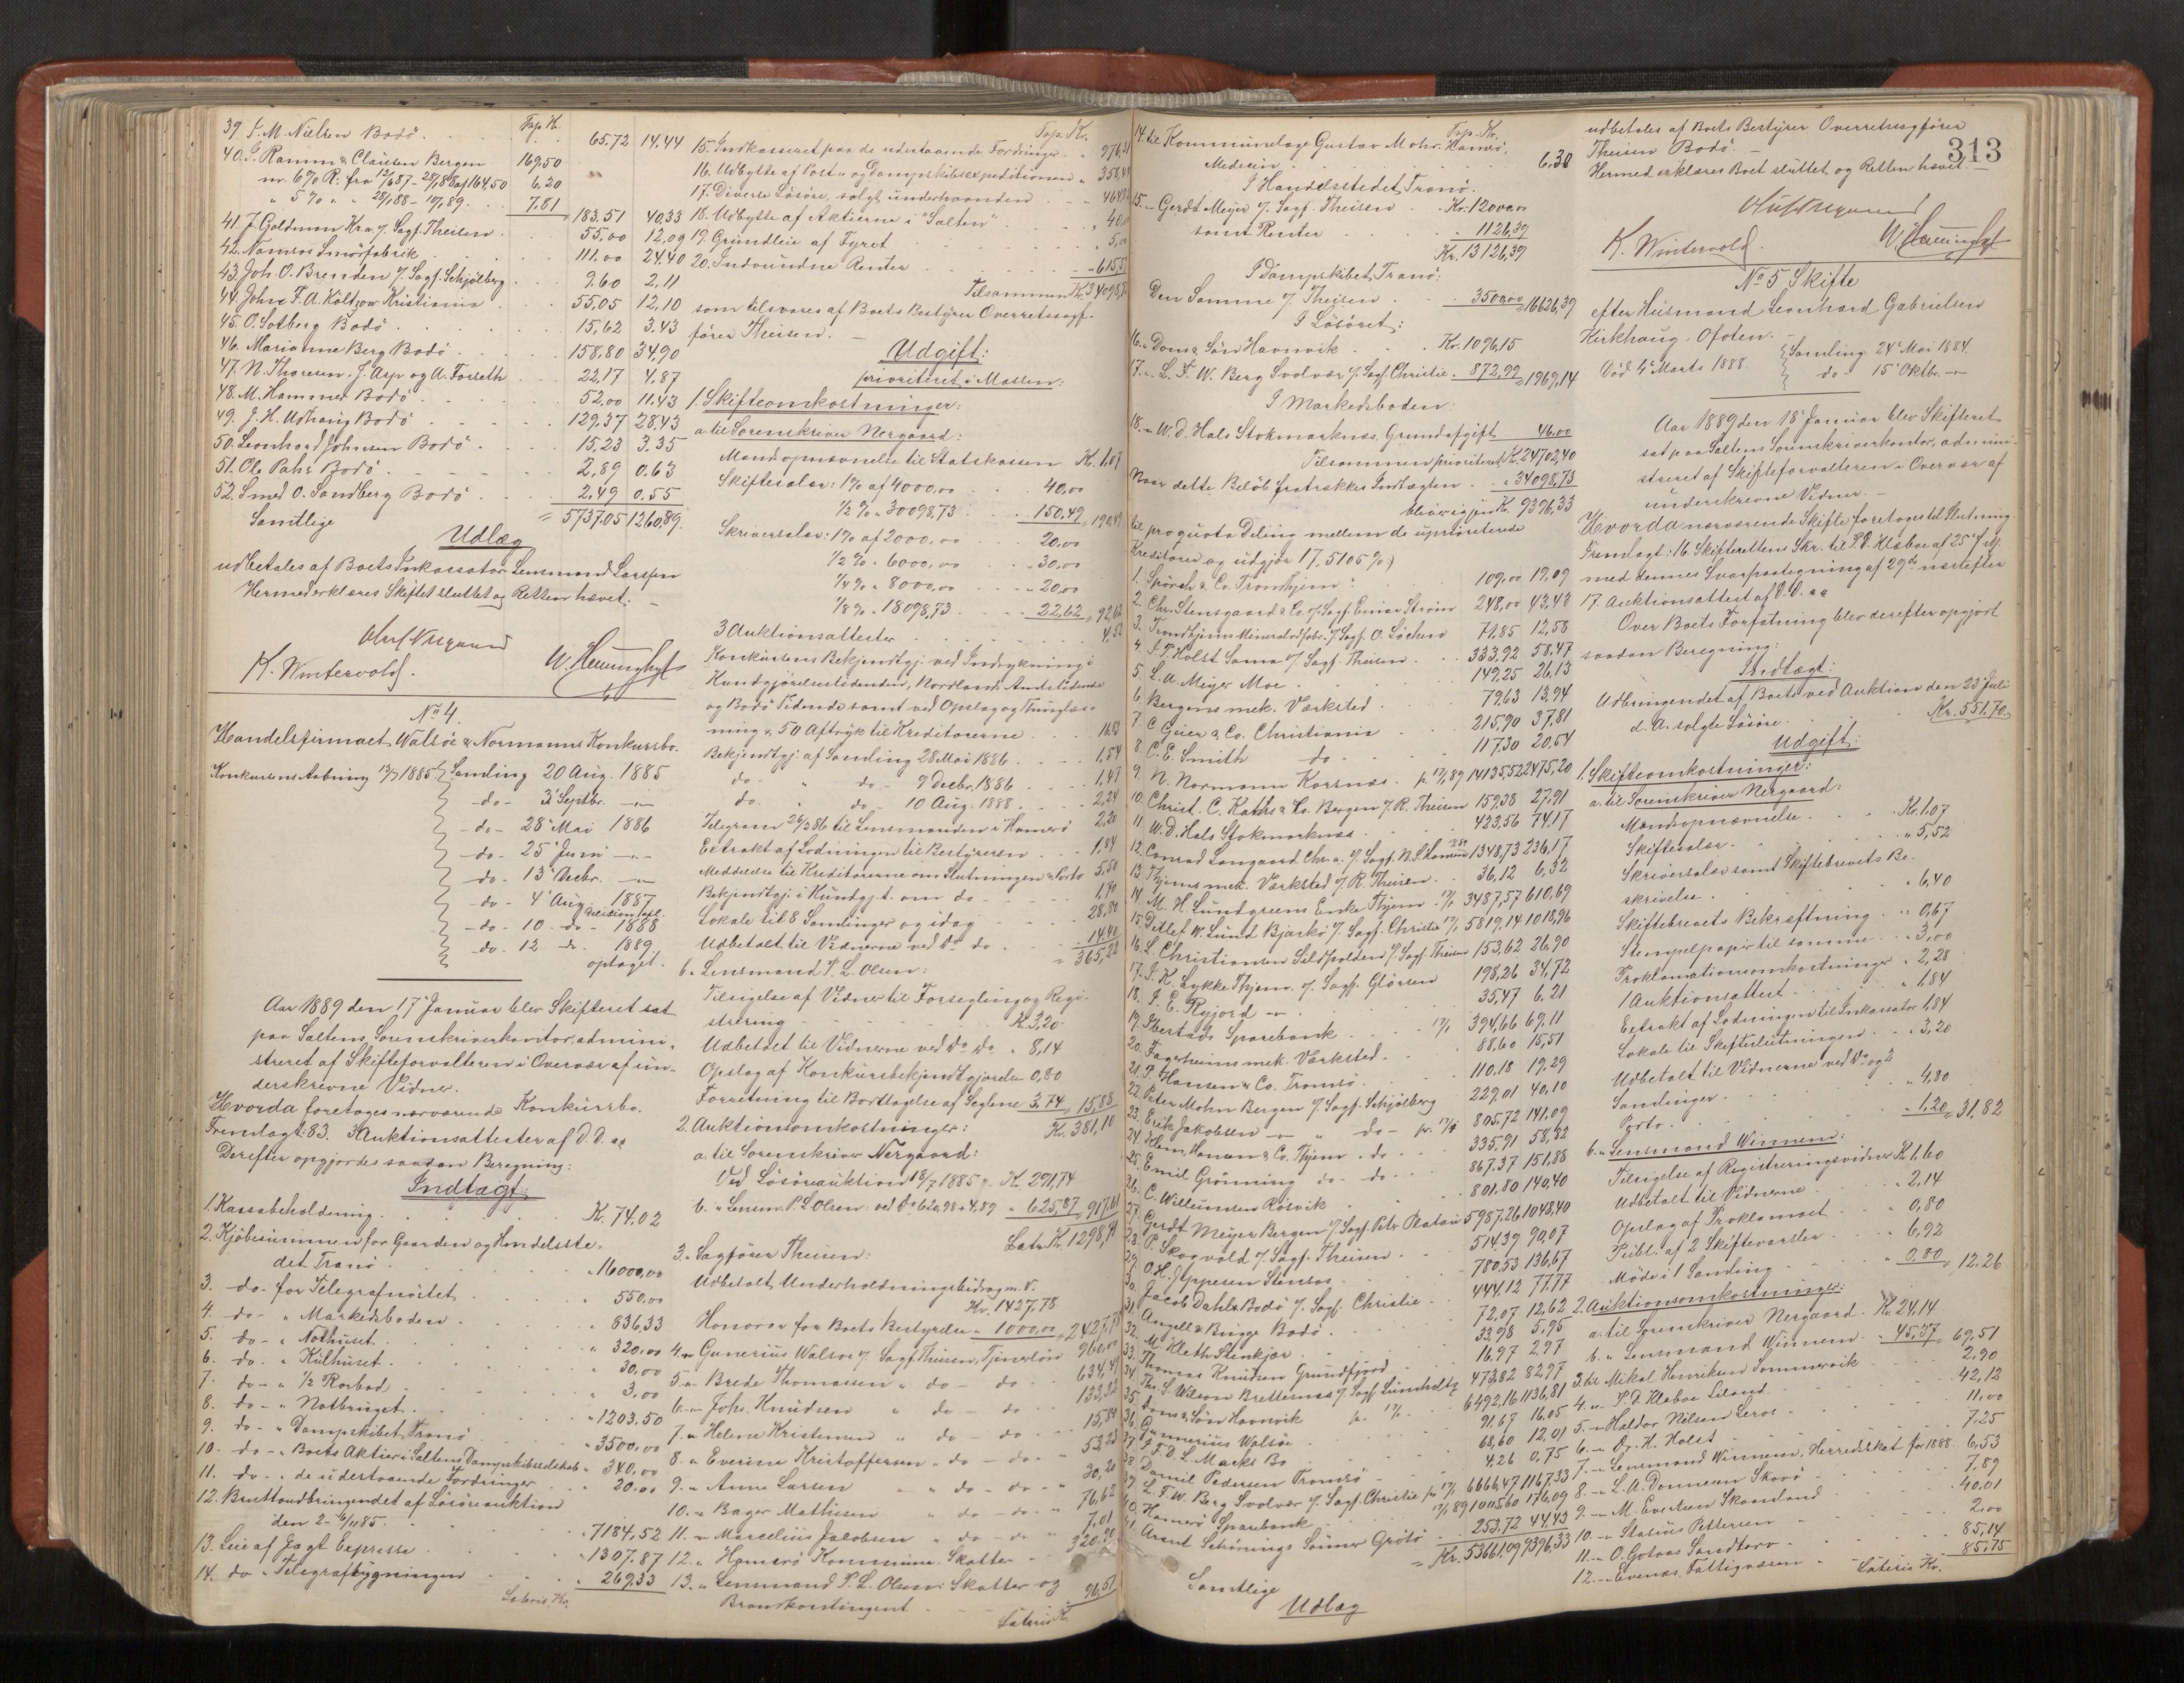 39. J. M. Nielsen Bodö . . 65.72 14.44
40. J. Ramm & Clausen Bergen 169.50
41. J. Goldman Kr.a. v. Sagf. Theisen 55,00 12,09
42. Namsos Smörfabrik . 111.00 24.40
43. Joh. O. Brenden v. Sagf. Schjölberg . 9.60 2,11
44. John F. A. Költzow Kristiania . 55,05 12,10
45. O. Solberg Bodö . . 15,62 3.43
46. Marianne Berg Bodö . . 158,80 34,90
47. N. Thoresen, J. Asp og A. Forseth . 22,17 4,87
48. M. Hammer Bodö . . 52.00 11.43
49. J. H. Udhaug Bodö . . 129,37 28,43
50. Leonhard Johnsen Bodö . 15,23 3.35
51. Ole Pahr Bodö . . 2,89 0,63
52. Smed O. Sandberg Bodö . 2,49 0.55
Samtlige = 5737.05 1260,89.
Udlæg
udbetales af Boets Inkassator Lensmand Larssen
Hermed erklæres Skiftet sluttet og Retten hævet.
K. Wintervold.
No 4.
Handelsfirmaet Walsöe & Normanns Konkursbo.
Konkursens Aabning 13/7 1885 Samling 20 Aug. 1885
-do- 3 Septbr.
-do- 28 Mai 1886
-do- 25 Juni
-do- 13 Decbr.
-do- 4 Aug. 1887
-do- 10 -do- 1888
do. 12 do. 1889
optaget.
Aar 1889 den 17 Januar blev Skifteret sat
paa Saltens Sorenskriverkontor, admini-
streret af Skifteforvalteren i Overvær af un-
derskrevne Vidner.
Hvorda foretoges nærværende Konkursbo.
Fremlagt: 83. 3 Auktionsattester af D. D.
Derefter opgjordes saadan Beregning:
Indtægt:
1. Kassabeholdning . . K. 74.02
2. Kjöbesummen for Gaarden og Handelsste-
det Tranö . . 16000,00
3. do- for Telegrafnöstet . 550,00
4. do- " Markedsboden . 836,33
5. do- " Nothuset . . 320,00
6. do. " Kulhuset . . 30,00
7. do- " 1/2 Rorbod . . 3.00
8. do- " Notbruget . . 1203.50
9. do- " Dampskibet Tranö . 3500,00
10. do- " Boets Aktier i Saltens Dampskibsselskab 340,00
11. do- " de udestaaende Fordringer . 20.00
12. Bruttoudbringendet af Lösöreauktion
den 2- 6/11 85. . 7184,52
13. Leie af Jagt Expresse . 1307,87
14. do " Telegrafbygningen . 269,33
Lateris Kr.
15. Indkasseret paa de udestaaende Fordringer
16. Udbytte af Post- og Dampskibsexpeditionen
17. Diverse Lösöre, solgt underhaanden
18. Udbytte af Aktierne i "Salten"
19. Grundleie af Fyret
20. Indvundne Renter
Tilsammen
som tilsvares af Boets Bestyrer Overretssagf-
förer Theisen.
Udgift:
prioriteret i Massen:
1. Skifteomkostninger:
a. til Sorenskriver Nergaard:
Mandsopnævnelse til Statskassen K. 1,07
Skiftesalær: 1% af 4000,00 . 40,00
1/2 % " 30098,73 . 150,49
Skriversalær: 1% af 2000,00 . 20,00
1/2 % " 6000,00 . 30,00
1/4 % " 8000,00 . 20,00
1/8 % " 18098,73 . 22,62 92,62
3 Auktionsattester . 4,52
Konkursens Bekjendtgj. ved Indrykning i
Kundgjörelsestidenden, Nordlands Amtstidende
og Bodö Tidende samt ved Opslag og Thinglæs-
ning & 50 Aftryk til Kreditorerne
Bekjendtgj. af Samling 28 Mai 1886 . 1,54
do- " do- 9 Decbr. 1886 . 1,47
do. " do- 10 Aug. 1888 . 2,24
Telegram 26/2 86 til Lensmanden i Hamerö 2,20
Extrakt af Lodningen til Bestyreren . 1,84
Meddelelse til Kreditorerne om Slutningen & Porto 5,50
Bekjendtgj. i Kundgj.t. om do . 1,40
Lokale til 8 Samlinger og idag . 28,80
Udbetalt til Vidnerne ved do do . 14,40
365,22
b. Lensmand P. L. Olsen:
Tilsigelse af Vidner til Forsegling og Regi-
strering . K. 3,20
Udbetalt til Vidnerne ved do do " 8,14
Opslag af Konkursbekjendtgjörelse 0,80
Forretning til Borttagelse af Seglene 3,74 15,88
Kr. 381,10
2. Auktionsomkostninger:
a. til Sorenskriver Nergaard:
Ved Lösöreauktion 18/7 1885 K. 291,74
b. " Lensm. P. L. Olsen ved do 620,98 + 4.89 625,87 917,61
Latr. Kr. 1298,71
3. Sagförer Theisen:
Udbetalt Underholdningsbidrag m. V.
Kr. 1427,78
Honorar for Boets Bestyrelse " 1000,00 2427,78
4. " Gunerius Walsöe v. Sagf. Theisen, Tjenerlön 960,00
5. " Brede Thomassen " do - do
6. " Johs. Knudsen " do - do
7. " Helene Kristensen " do - do 15,80
8. " Everine Kristoffersen - do - do
9. " Anne Larsen " do - do 30,20
10. " Bager Mathisen " do - do 76,62
11. " Marcelius Jakobsen " do - do 7,01
12. " Hamerö Kommune. Skatter
13. " Lensmand P. L. Olsen: Skatter og
Brandkontingent . 96,51
Lateris K.
14. til Kommunelæge Gustav Mohr Hamerö,
Medecin . . 6.30
I Handelsstedet Tranö:
15. " Gerdt Meyer v. Sagf. Theisen . Kr. 12000,00
samt Renter . . 1126,39
Kr. 13126,39
I Dampskibet Tranö:
Den Samme v. Theisen . . 3500,00 16626,39
I Lösöret:
16. " Dons & Sön Havnvik . . Kr. 1096,15
17. " L. F. W. Berg Svolvær v. Sagf. Christie . 872,99 1969,14
I Markedsboden:
18. " W. D. Hals Stokmarknæs, Grundafgift 46,00
Tilsammen prioriteret K. 24702,40
Naar dette Belöb fratrækkes Indtægten . 34098,73
bliver igjen K. 9396,33
til pro quota Deling mellem de uprioriterede
Kreditorer og udgjör 17,5105 %)
1. Spörck & Co. Trondhjem . 109,00 19,09
2. Chr. Stensgaard & Co. v. Sagf. Einar Ström 248,00 43,43
3. Trondhjems Mineralvdfabr. v. Sagf. O. Löchen 71,85 12,58
4. J. P. Holst Sama v. Sagf. Theisen . 333,92 58,47
5. L. A. Meyer Moe . 149,25 26,13
6. Bergens mek. Værksted . 79,63 13,94
7. C. Geier & Co. Christiania . 215,90 37,81
8. C. E. Smith do- . 117,30 20,54
9. N. Normann Korsnæs . pr. 17/1 89 14135,52 2475,20
10. Christ. C. Kahrs & Co. Bergen v. R. Theisen 159,38 27,91
11. W. D. Hals Stokmarknæs . 423,56 74,17
12. Conrad Langaard Chr.a. v. Sagf. 1348,73 236,17
13. Thjems mek. Værksted v. R. Theisen . 36,12 6,32
14. M. H. Lundgreens Enke Thjem . 3487,57 610,69
15. Ditlef W. Lund Bjarkö v. Sagf. Christie 17/1 5819,14 1018,96
16. L. Christiansen Sildpolden v. Sagf. Theisen 153,62 26,90
17. J. K. Lykke Thjem v. Sagf. Glörsen 198,26 34,72
18. J. E. Ryjord . 35,47 6,21
19. Ibestads Sparebank . 17/1 394,66 69,11
20. Fagerheims mek. Værksted . 88,60 15,51
21. P. Hansen & Co. Tromsö . 110.18 19,29
22. Peter Mohn Bergen v. Sagf. Schjölberg 229,01 40,10
23. Erik Jakobsen " do - pr. 17/1 805,72 141,09
24. Klem, Hansen & Co. Thjem - do . 335,91 58,82
25. Emil Grönning do- do- 867.37 151,88
26. C. Willumsen Rörvik . 801,80 140,40
27. Gerdt Meyer Bergen v. Sagf. Petr. Platou 5987,26 1048,40
28. P. Skogvold v. Sagf. Theisen . 514,39 90,07
29. O. H. Jeppesen Stensos . 780,53 136,67
30. Jacob Dahls Bodö v. Sagf. Christie . 444,12 77,77
31. Angell & Brügge Bodö . 72,07 12,62
32. M. Kleth Stenkjær . 33,98 5,95
33. Thomas Knudsen Grundfjord . 16,97 2,97
34. Ths. S. Wilson Brettesnæs v. Sagf. Lumholtz 473,82 82,97
35. Dons & Sön Havnvik pr. 17/1 6492,16 1136,81
36. Gunnerius Walsöe . 91,67 16,05
37. J. F. D. L. Marks Bo . 68,60 12,01
38. Daniel Pedersen Tromsö . 4,26 0,75
39. L. F. W. Berg Svolvær v. Sagf. Christie pr. 17/1 6666,47 1167,33
40. Hamerö Sparebank . 17/1 89 1005,60 176,09
41. Arent Schönings Sönner Grötö . 253,72 44,43
= Kr. 53661,09 9396,33
Samtlige
Udlæg
udbetales af Boets Bestyrer Overretssagförer
Theisen Bodö.
313
Hermed erklæres Boet sluttet og Retten hævet.
K. Wintervold.
No 5 Skifte
efter Husmand Leonhard Gabrielsen
Kirkhaug, Ofoten.
Död 4 Marts 1888. Samling 24 Mai 1884.
do- 15 Oktbr.
Aar 1889 den 18 Januar blev Skifteret
sat paa Saltens Sorenskriverkontor, admini-
streret af Skifteforvalteren i Overvær af
underskrevne Vidner.
Hvorda nærværende Skifte foretoges til Slutning.
Fremlagt: 16. Skifterettens Skr. til P. D. Klæboe af 25
med dennes Svarpaategning af 29de næstefter
17. Auktionsattest af D. D.
Over Boets Forfatning blev derefter opgjort
saadan Beregning:
Indtægt:
Udbringendet af Boets ved Auktion den 23 Juli
d. A. solgte Lösöre . . Kr. 551.70.
Udgift:
1. Skifteomkostninger:
a. til Sorenskriver Nergaard:
Mandsopnævnelse . . Kr. 1,07
Skiftesalær . . " 5,52
Skriversalær samt Skiftebrevets Be-
skrivelse . . " 6,40
Skiftebrevets Bekræftning . " 0,67
Stempelpapir til samme . " 3,00
Proklamationsomkostninger " 2,28
1 Auktionsattest . . " 1,84
Extrakt af Lodningen til Inkassator 1,84
Lokale til Skifteslutningen . " 3,20
Udbetalt til Vidnerne ved do og 2
Samlinger . . " 4,80
Porto . . " 1,20 = 31,82
b. " Lensmand Winnem:
Tilsigelse af Registreringsvidner K. 1,60
Udbetalt til Vidnerne . " 2,14
Opslag af Proklamaet . " 0,80
Publ. af 2 Skiftevarsler . " 6,92
Möde i 1 Samling . " 0,80 12,26
2. Auktionsomkostninger:
a. til Sorenskriver Nergaard . Kr. 24,14
b. " Lensmand Winnem . 45,37 69,51
3. til Mikal Henriksen Sommervik . 2,90
4. " P. D. Klæboe Liland . 42,12
5. " Haldor Nilsen Leros . 11,00
6. " Dr. H. Holst . 7,25
7. " Lensmand Winnem, Herredskat for 1888 6,53
8. " L. A. Dannevm Skovö . 7,89
9. " M. Evertsen Skaanland . 40,01
10. " Stasius Pettersen . 2,00
11. " O. Gotaas Sandtorv . 85,14
12. " Evenæs Fattigvæsen . 85,75
Lateris Kr.